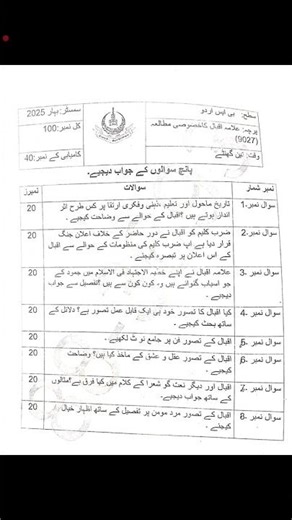 سطح: بی ایس اردو
پرچہ: علامہ اقبال کا خصوصی مطالعہ
(9027)
وقت: تین گھنٹے
سمسٹر: بہار 2025
کل نمبر: 100
کامیابی کے نمبر: 40
پانچ سوالوں کے جواب دیجیے۔
نمبر شمار سوالات نمبرز
سوال نمبر۔1 تاریخ ماحول اور تعلیم ذہنی وفکری ارتقا پر کس طرح اثر 20
انداز ہوتے ہیں ؟اقبال کے حوالے سے وضاحت کیجیے ۔
سوال نمبر۔2 ضرب کلیم کو اقبال نے دور حاضر کے خلاف اعلان جنگ 20
قرار دیا ہے اپ ضرب کلیم کی منظومات کے حوالے سے اقبال
کے اس اعلان پر تبصرہ کیجئے ۔
سوال نمبر ۔3 علامہ اقبال نے اپنے خطبہ الاجتہاد فی الاسلام میں جمود کے 20
جو اسباب گنوائے ہیں وہ کون کون سے ہیں ؟تفصیل سے جواب
دیجیے ۔
سوال نمبر ۔4 کیا اقبال کا تصور خود ہی ایک قابل عمل تصور ہے؟ دلائل کے 20
ساتھ بحث کیجیے ۔
سوال نمبر ۔5 اقبال کے تصور فن پر جامع نو ٹ لکھیے ۔ 20
سوال نمبر ۔6 اقبال کے تصور عقل و عشق کے ماخذ کیا ہیں؟ وضاحت 20
کیجیے ۔
سوال نمبر ۔7 اقبال اور دیگر نعت گو شعرا کے کلام میں کیا فرق ہے؟مثالوں 20
کے ساتھ جواب دیجیے ۔
سوال نمبر ۔8 اقبال کے تصور مرد مومن پر تفصیل کے ساتھ اظہار خیال 20
کیجئے ۔